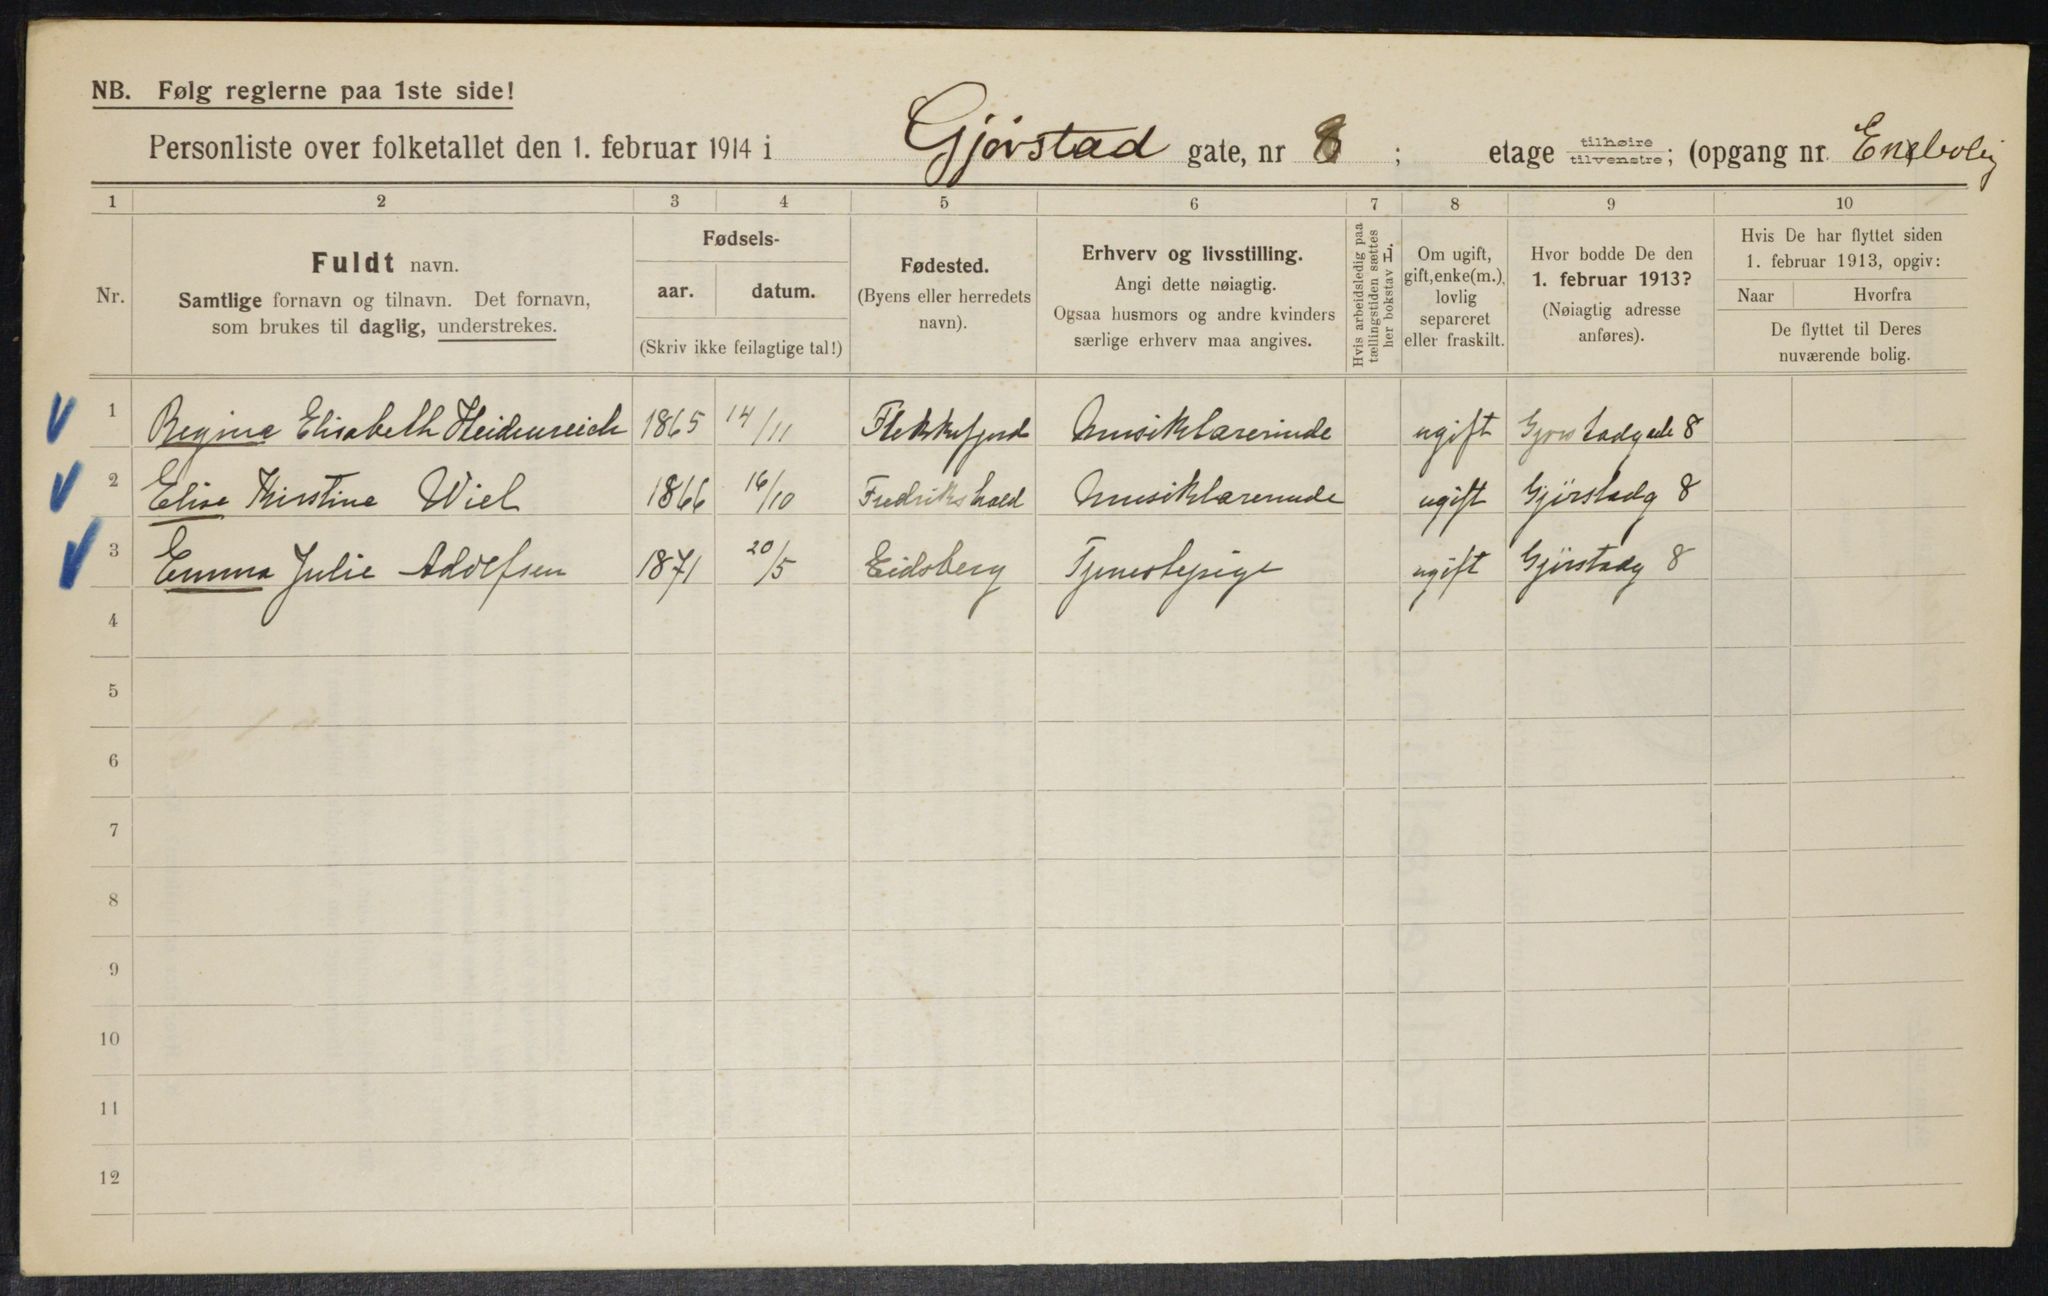 NB. Følg reglerne paa 1ste side!
Personliste over folketallet den 1. februar 1914 i Gjørstad gate, nr 8 ; etage tilhøire tilvenstre; (opgang nr. Enebolig
1 2 3 4 5 6 7 8 9 10
Nr.
Fuldt navn.
Samtlige fornavn og tilnavn. Det fornavn,
som brukes til daglig, understrekes.
Fødsels-
aar. datum.
(Skriv ikke feilagtige tal!)
Fødested.
(Byens eller herredets
navn).
Erhverv og livsstilling.
Angi dette nøiagtig.
Ogsaa husmors og andre kvinders
særlige erhverv maa angives.
Hvis arbeidsledig paa
tællingstiden sættes
her bokstav L.
Om ugift,
gift, enke(m.),
lovlig
separeret
eller fraskilt.
Hvor bodde De den
1. februar 1913?
(Nøiagtig adresse
anføres).
Hvis De har flyttet siden
1. februar 1913, opgiv:
Naar Hvorfra
De flyttet til Deres
nuværende bolig.
1 Regine Elisabeth Heidenreich 1865 14/11 Flekkefjord Musiklærerinde ugift Gjørstadgade 8
2 Elise Kirstine Wiel 1866 16/10 Fredrikshald Musiklærerinde ugift Gjørstadg 8
3 Emma Julie Adolfsen 1871 20/5 Eidsberg Tjenestepige ugift Gjørstadg 8
4
5
6
7
8
9
10
11
12